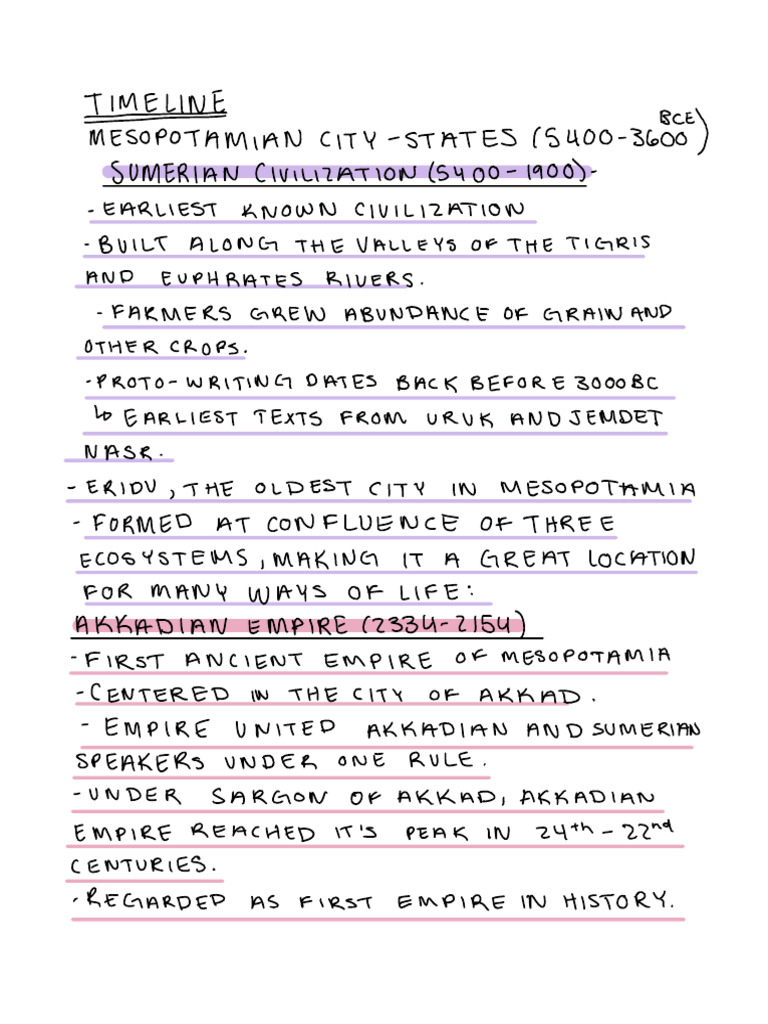 TIMELINE
BCE
MESOPOTAMIAN CITY-STATES (5400-3600)
SUMERIAN CIVILIZATION (5400-1900)-
- EARLIEST KNOWN CIVILIZATION
- BUILT ALONG THE VALLEYS OF THE TIGRIS
AND EUPHRATES RIVERS.
- FARMERS GREW ABUNDANCE OF GRAIN AND
OTHER CROPS.
- PROTO-WRITING DATES BACK BEFORE 3000 BC
↳ EARLIEST TEXTS FROM URUK AND JEMDET
NASR.
- ERIDU, THE OLDEST CITY IN MESOPOTAMIA
- FORMED AT CONFLUENCE OF THREE
ECOSYSTEMS, MAKING IT A GREAT LOCATION
FOR MANY WAYS OF LIFE:
AKKADIAN EMPIRE (2334-2154)
- FIRST ANCIENT EMPIRE OF MESOPOTAMIA
- CENTERED IN THE CITY OF AKKAD.
- EMPIRE UNITED AKKADIAN AND SUMERIAN
SPEAKERS UNDER ONE RULE.
- UNDER SARGON OF AKKAD, AKKADIAN
EMPIRE REACHED IT'S PEAK IN 24th - 22nd
CENTURIES.
- REGARDED AS FIRST EMPIRE IN HISTORY.